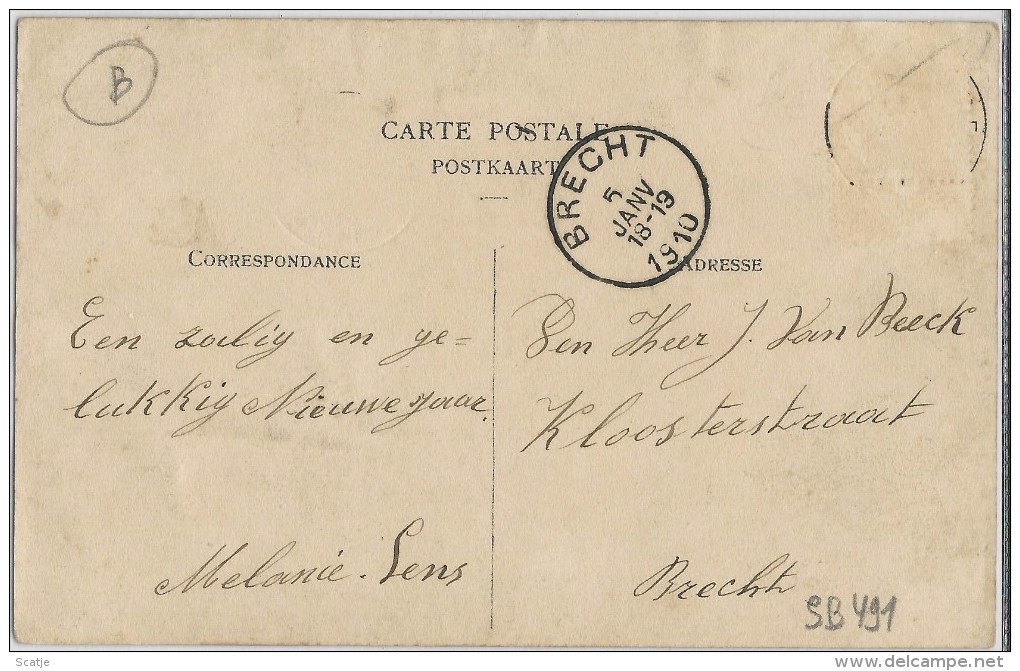 B
CARTE POSTALE
POSTKAART
BRECHT
5
JANV
18-19
1910
CORRESPONDANCE
ADRESSE
Een zalig en ge=
lukkig Nieuwejaar.
Melanie. Lens
Den Heer J. Van Beeck
Kloosterstraat
Brecht
SB 491
Scatje
delcampe.net